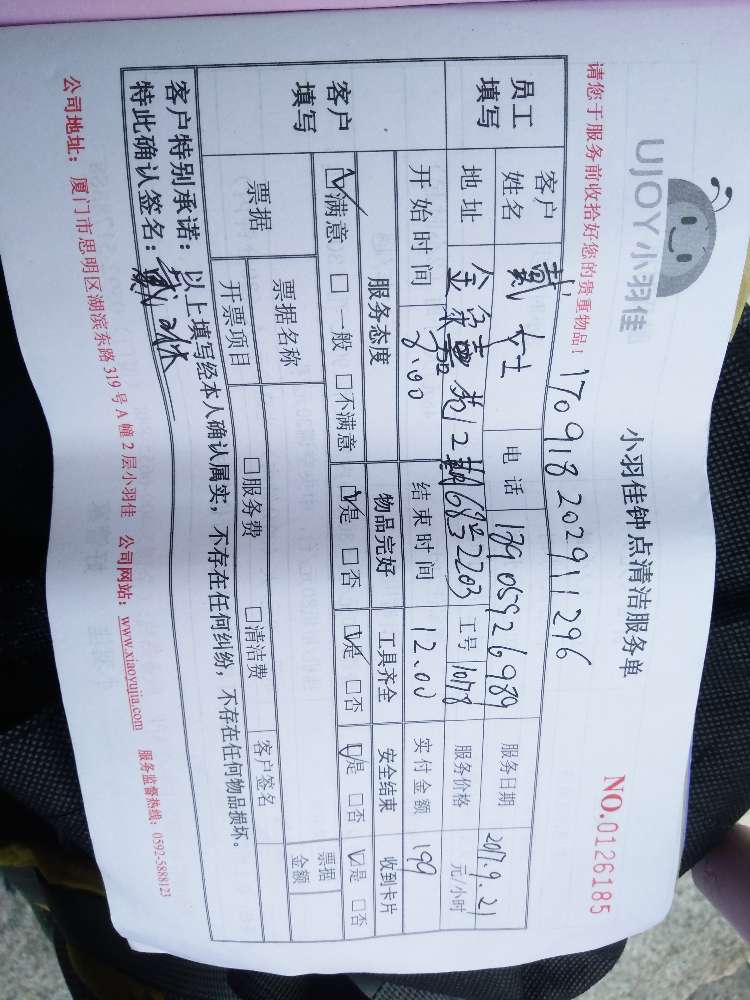 UJOY小羽佳
小羽佳钟点清洁服务单
NO.0126185
请您于服务前收拾好您的贵重物品！
17091820291 1296
员工填写 客户姓名 戴女士 电话 服务日期 2017.9.21
地址 12 2203 工号 1078 服务价格 元/小时
开始时间 结束时间 12.00 实付金额 199
客户填写 服务态度 物品完好 工具齐全 安全结束 收到卡片
☑满意 □一般 □不满意 ☑是 □否 ☑是 □否 ☑是 □否 ☑是 □否
票据 票据名称 票据金额
开票项目 □服务费 □清洁费 客户签名
客户特别承诺：以上填写经本人确认属实，不存在任何纠纷，不存在任何物品损坏。
特此确认签名：戴
公司地址：厦门市思明区湖滨东路319号A幢2层小羽佳 公司网站：www.xiaoyujia.com 服务监督热线：0592-5888123